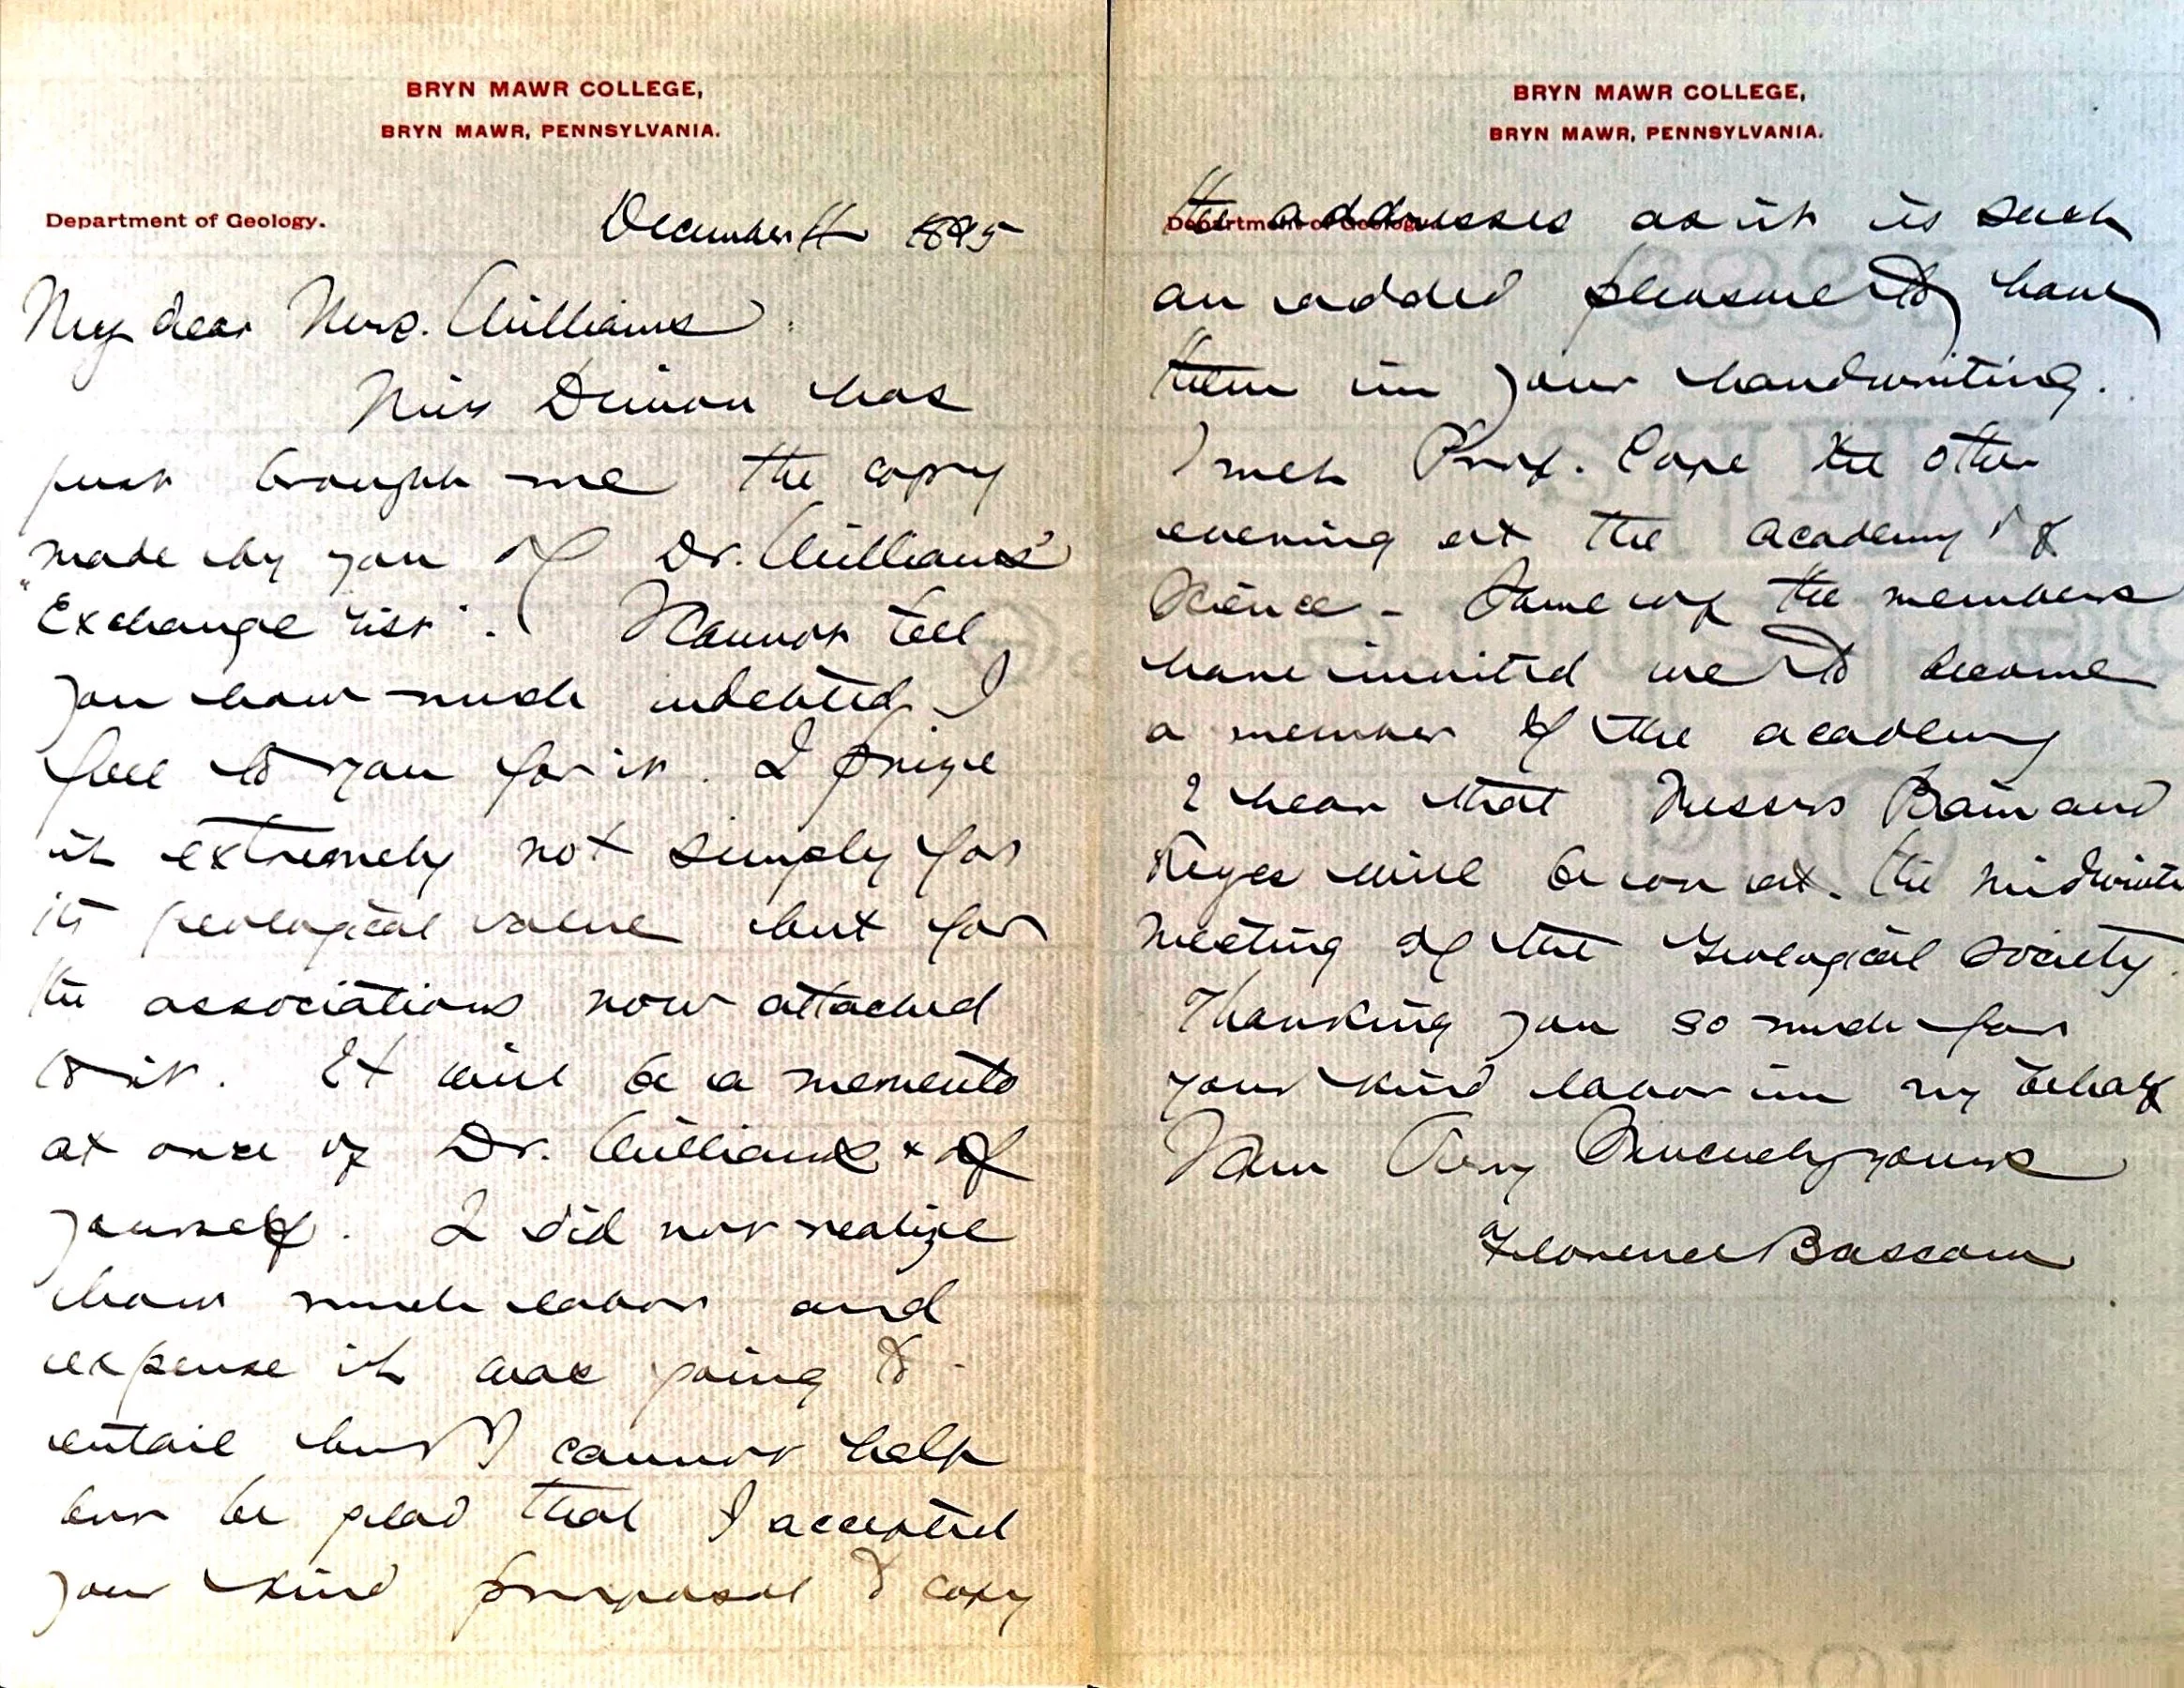 BRYN MAWR COLLEGE,
BRYN MAWR, PENNSYLVANIA.
Department of Geology.
December 1895
My dear Mrs. Williams
Miss has
just brought me the copy
made by you of Dr. Williams'
"Exchange list". I cannot tell
you how much indebted I
feel to you for it. I prize
it extremely not simply for
its geological value but for
the associations now attached
to it. It will be a memento
at once of Dr. Williams & of
yourself. I did not realize
how much labor and
expense it was going to
entail but I cannot help
but be glad that I accepted
your kind proposal to copy
BRYN MAWR COLLEGE,
BRYN MAWR, PENNSYLVANIA.
Department of Geology.
the addresses as it is such
an added pleasure to have
them in your handwriting.
I met Prof. Cope the other
evening at the academy of
Science - Some of the members
have invited me to become
a member of the academy
I hear that Messrs Bain and
Keyes will be on at the midwinter
meeting of the Geological society.
Thanking you so much for
your kind labor in my behalf
I am Very Sincerely yours
Florence Bascom